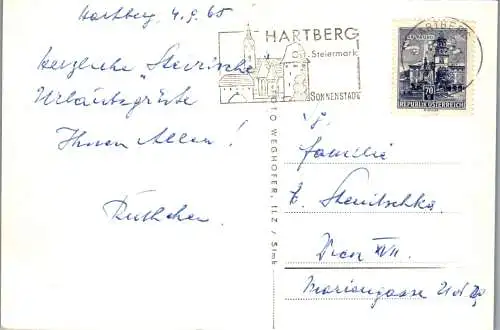 Hartberg, 4.9.65
Herzliche Steirische
Urlaubsgrüste
Ihnen Allen!
Ruthchen.
HARTBERG
Steiermark
SONNENSTADT
HARTBERG
REPUBLIK ÖSTERREICH
70
FOTO WEGHOFER, ILZ / Stmk
Familie
Wien XVII.
Mariengasse